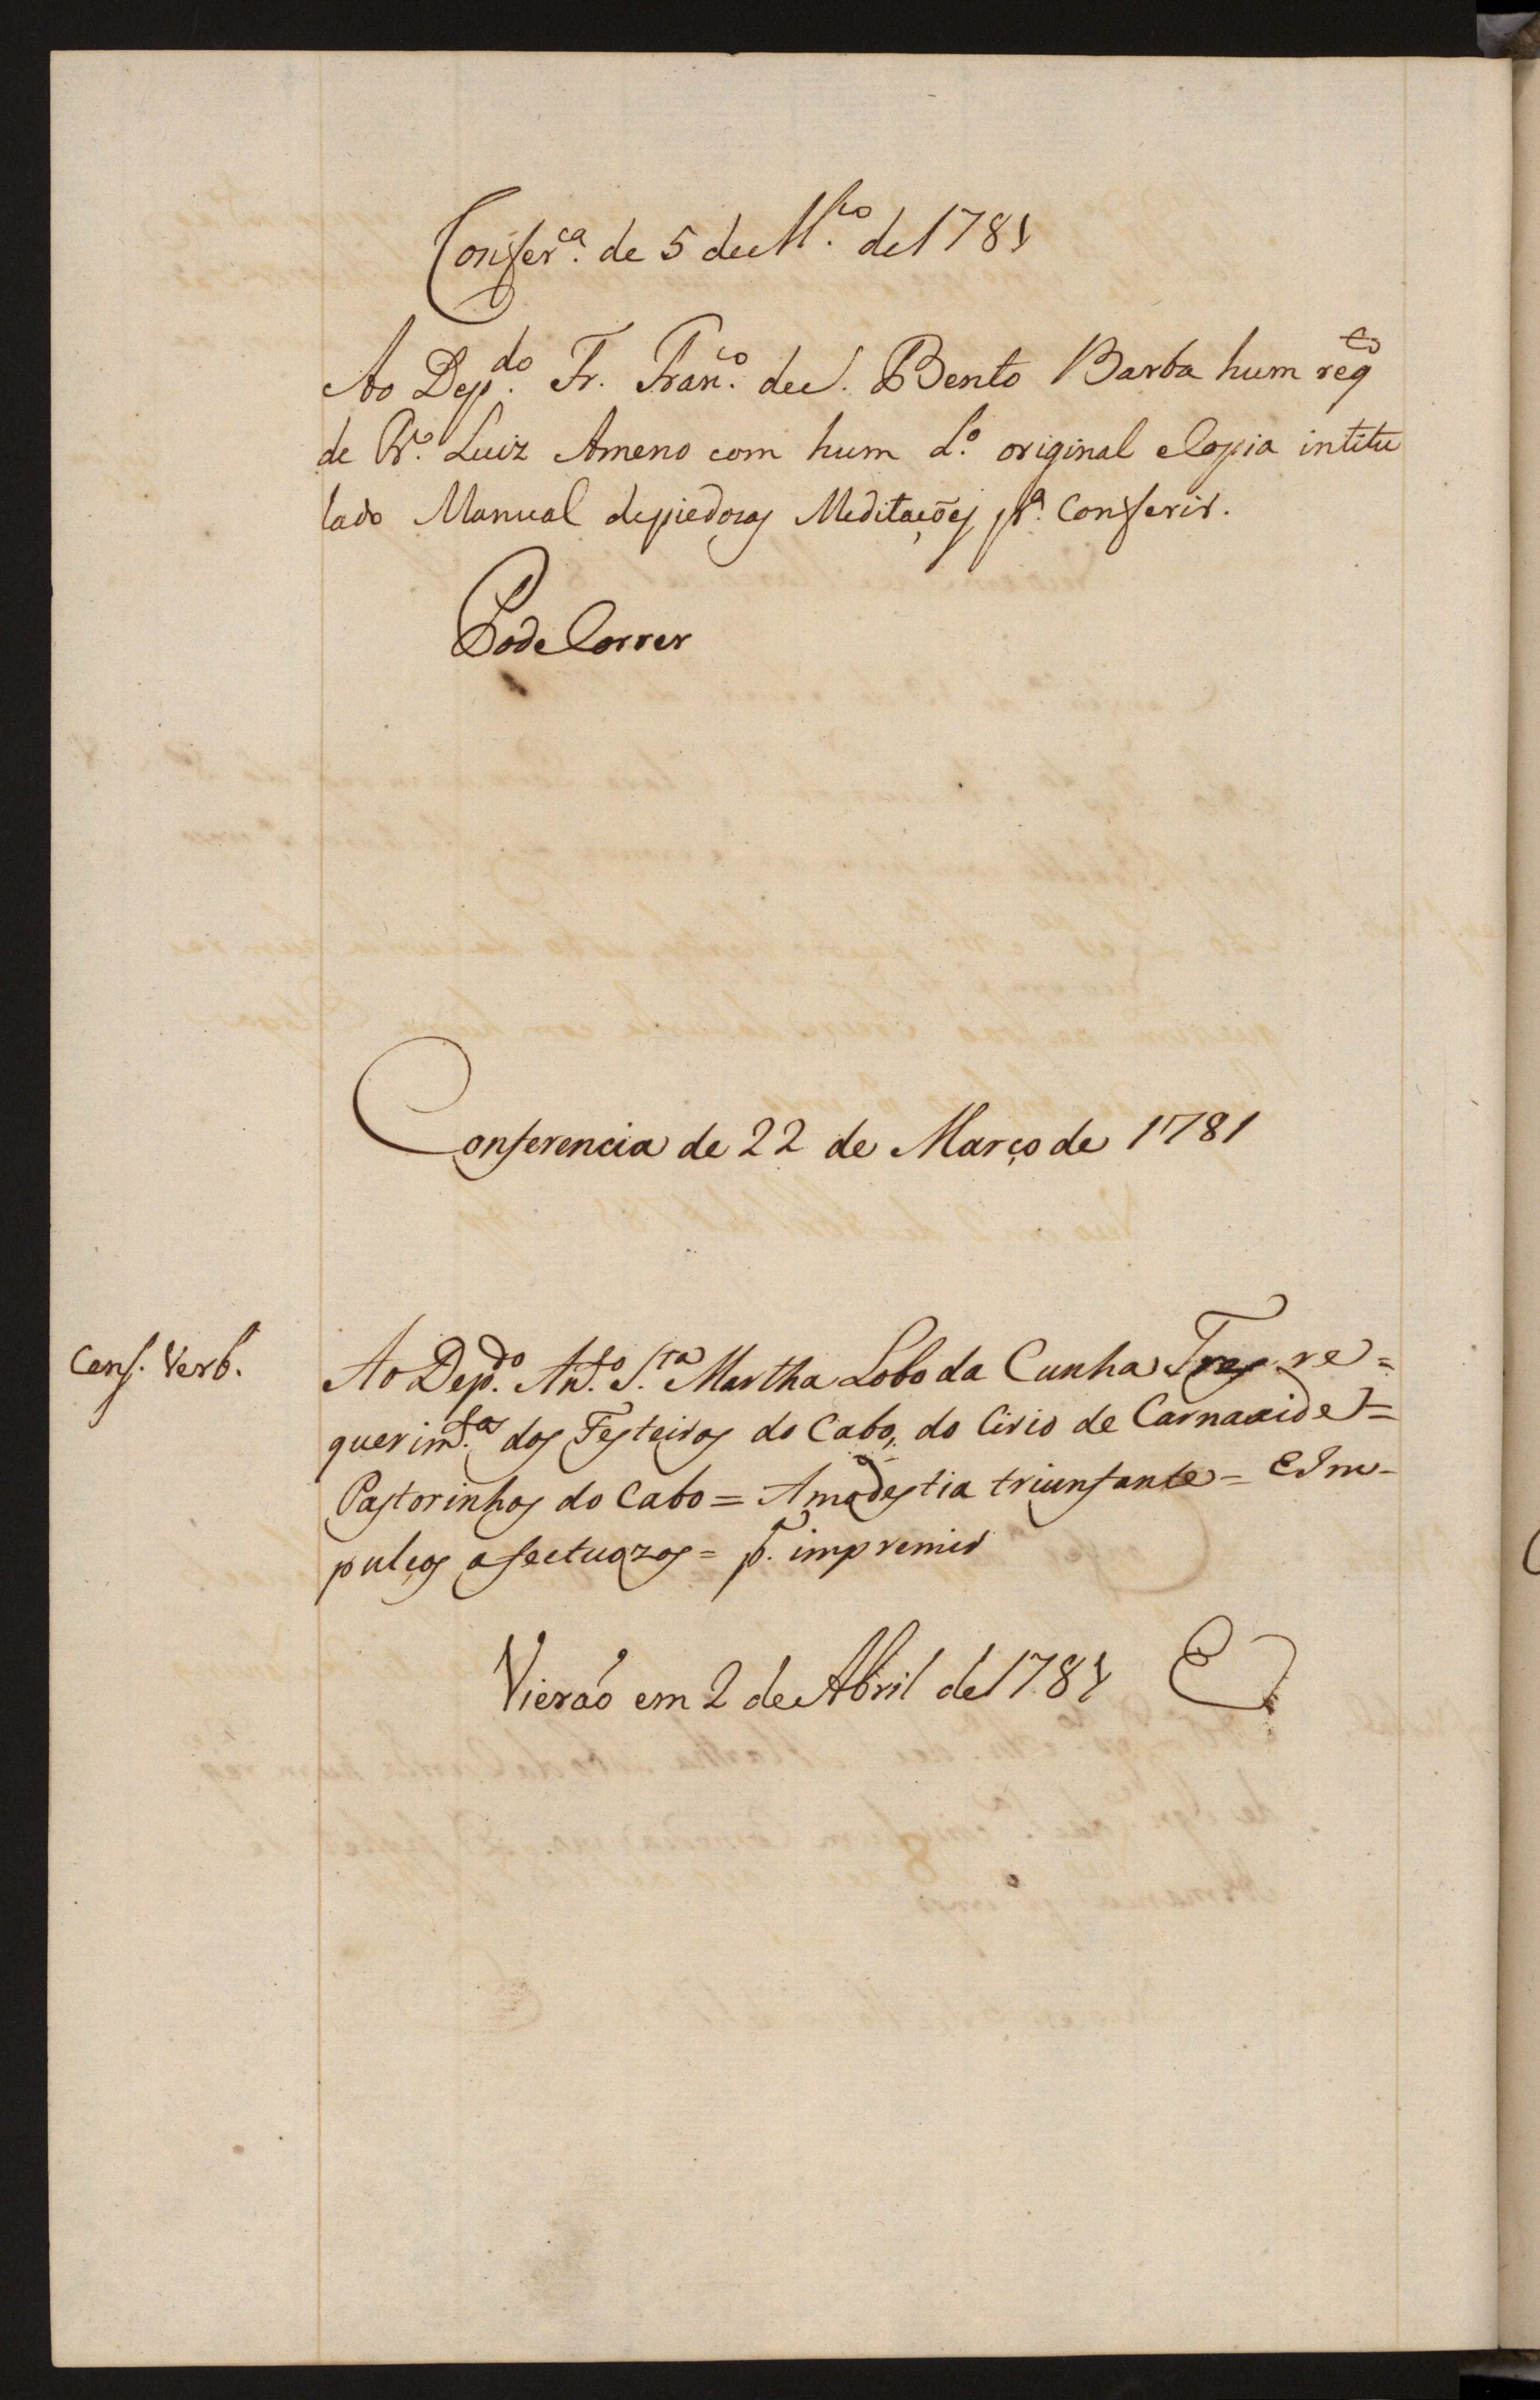 Confer.ca de 5 de M.ço de 1781
Ao Dep.do Fr. Fran.co de S. Bento Barba hum reqto
de Fr.co Luiz Ameno com hum L.o original e Copia intitu
lado Manual de piedozas Meditações p.a Conferir.
Pode Correr
Conferencia de 22 de Março de 1781
Cens. Verb.
Ao Dep.do An.to S.ta Martha Lobo da Cunha Tres re=
querim.tos dos Festeiros do Cabo, do Cirio de Carnaxide =
Pastorinhos do Cabo = A modestia triunfante = E Im-
pulços afectuozos = p.a impremir
Vieraõ em 2 de Abril de 1781